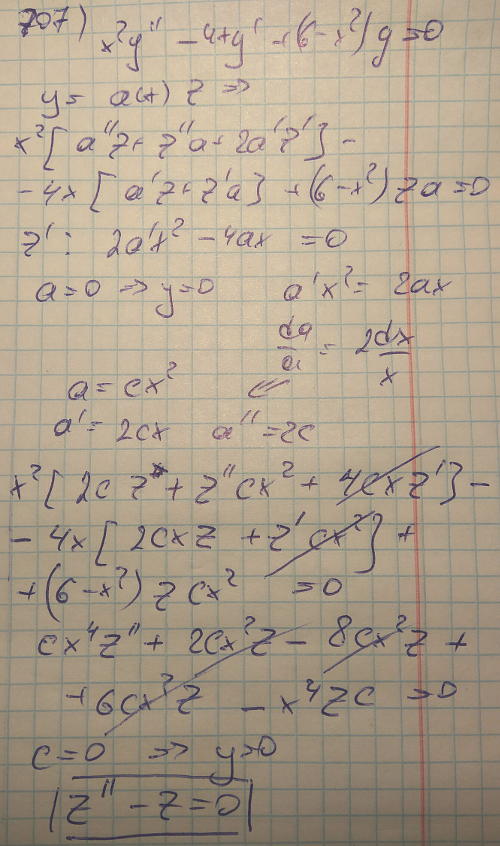 707) x²y'' - 4xy' + (6-x²)y = 0
y = a(x) z ⇒
x²[a''z + z''a + 2a'z'] -
- 4x[a'z + z'a] + (6-x²) za = 0
z': 2a'x² - 4ax = 0
a=0 ⇒ y=0 a'x² = 2ax
da/a = 2dx/x
a = cx² ⇐
a' = 2cx a'' = 2c
x²[2c z + z''cx² + 4cxz'] -
- 4x[2cxz + z'cx²] +
+ (6-x²) z cx² = 0
cx⁴z'' + 2cx²z - 8cx²z +
+ 6cx²z - x⁴zc = 0
c=0 ⇒ y=0
|z'' - z = 0|